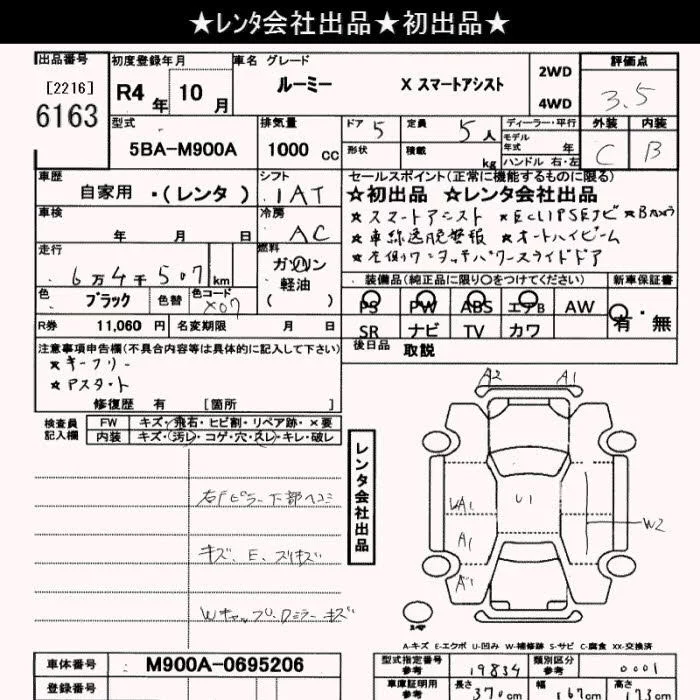 ★レンタ会社出品★初出品★
出品番号 初度登録年月 車名 グレード 評価点
[2216]
6163
R4年 10月 ルーミー X スマートアシスト 2WD 4WD 3.5
型式 排気量 ドア 5 定員 5人 ディーラー・平行 外装 内装
5BA-M900A 1000cc 形状 積載 kg モデル年式 年 C B
ハンドル 右・左
車歴 シフト セールスポイント(正常に機能するものに限る)
自家用 ・(レンタ) IAT ★初出品 ★レンタ会社出品
車検 冷房 ★スマートアシスト ★ECLIPSEナビ ★Bカメラ
年 月 日 AC ★車線逸脱警報 ★オートハイビーム
走行 燃料 ★左側ワンタッチパワースライドドア
6万4千507km ガソリン 軽油 ( )
装備品(純正品に限り○をつけてください) 新車保証書
色 ブラック 色替 色コード X07 PS PW ABS エアB AW 有・無
R券 11,060 円 名変期限 月 日 SR ナビ TV カワ
後日品 取説
注意事項申告欄(不具合内容等は具体的に記入して下さい)
★キーフリー
★Pスタート
修復歴 有 [箇所 ]
検査員記入欄 FW キズ・飛石・ヒビ割・リペア跡・×要
内装 キズ・汚レ・コゲ・穴・スレ・キレ・破レ
A2 A1
レンタ会社出品
右Fピラー下部ヘコミ
U1
W2
A1
キズ、E、スリキズ
Wキャップ、
キズ
A-キズ E-エクボ U-凹み W-補修跡 S-サビ C-腐食 XX-交換済
車体番号 M900A-0695206 型式指定番号 参考 19834 類別区分 参考 0001
登録番号 車庫証明用 参考 長さ 370cm 幅 167cm 高さ 173cm